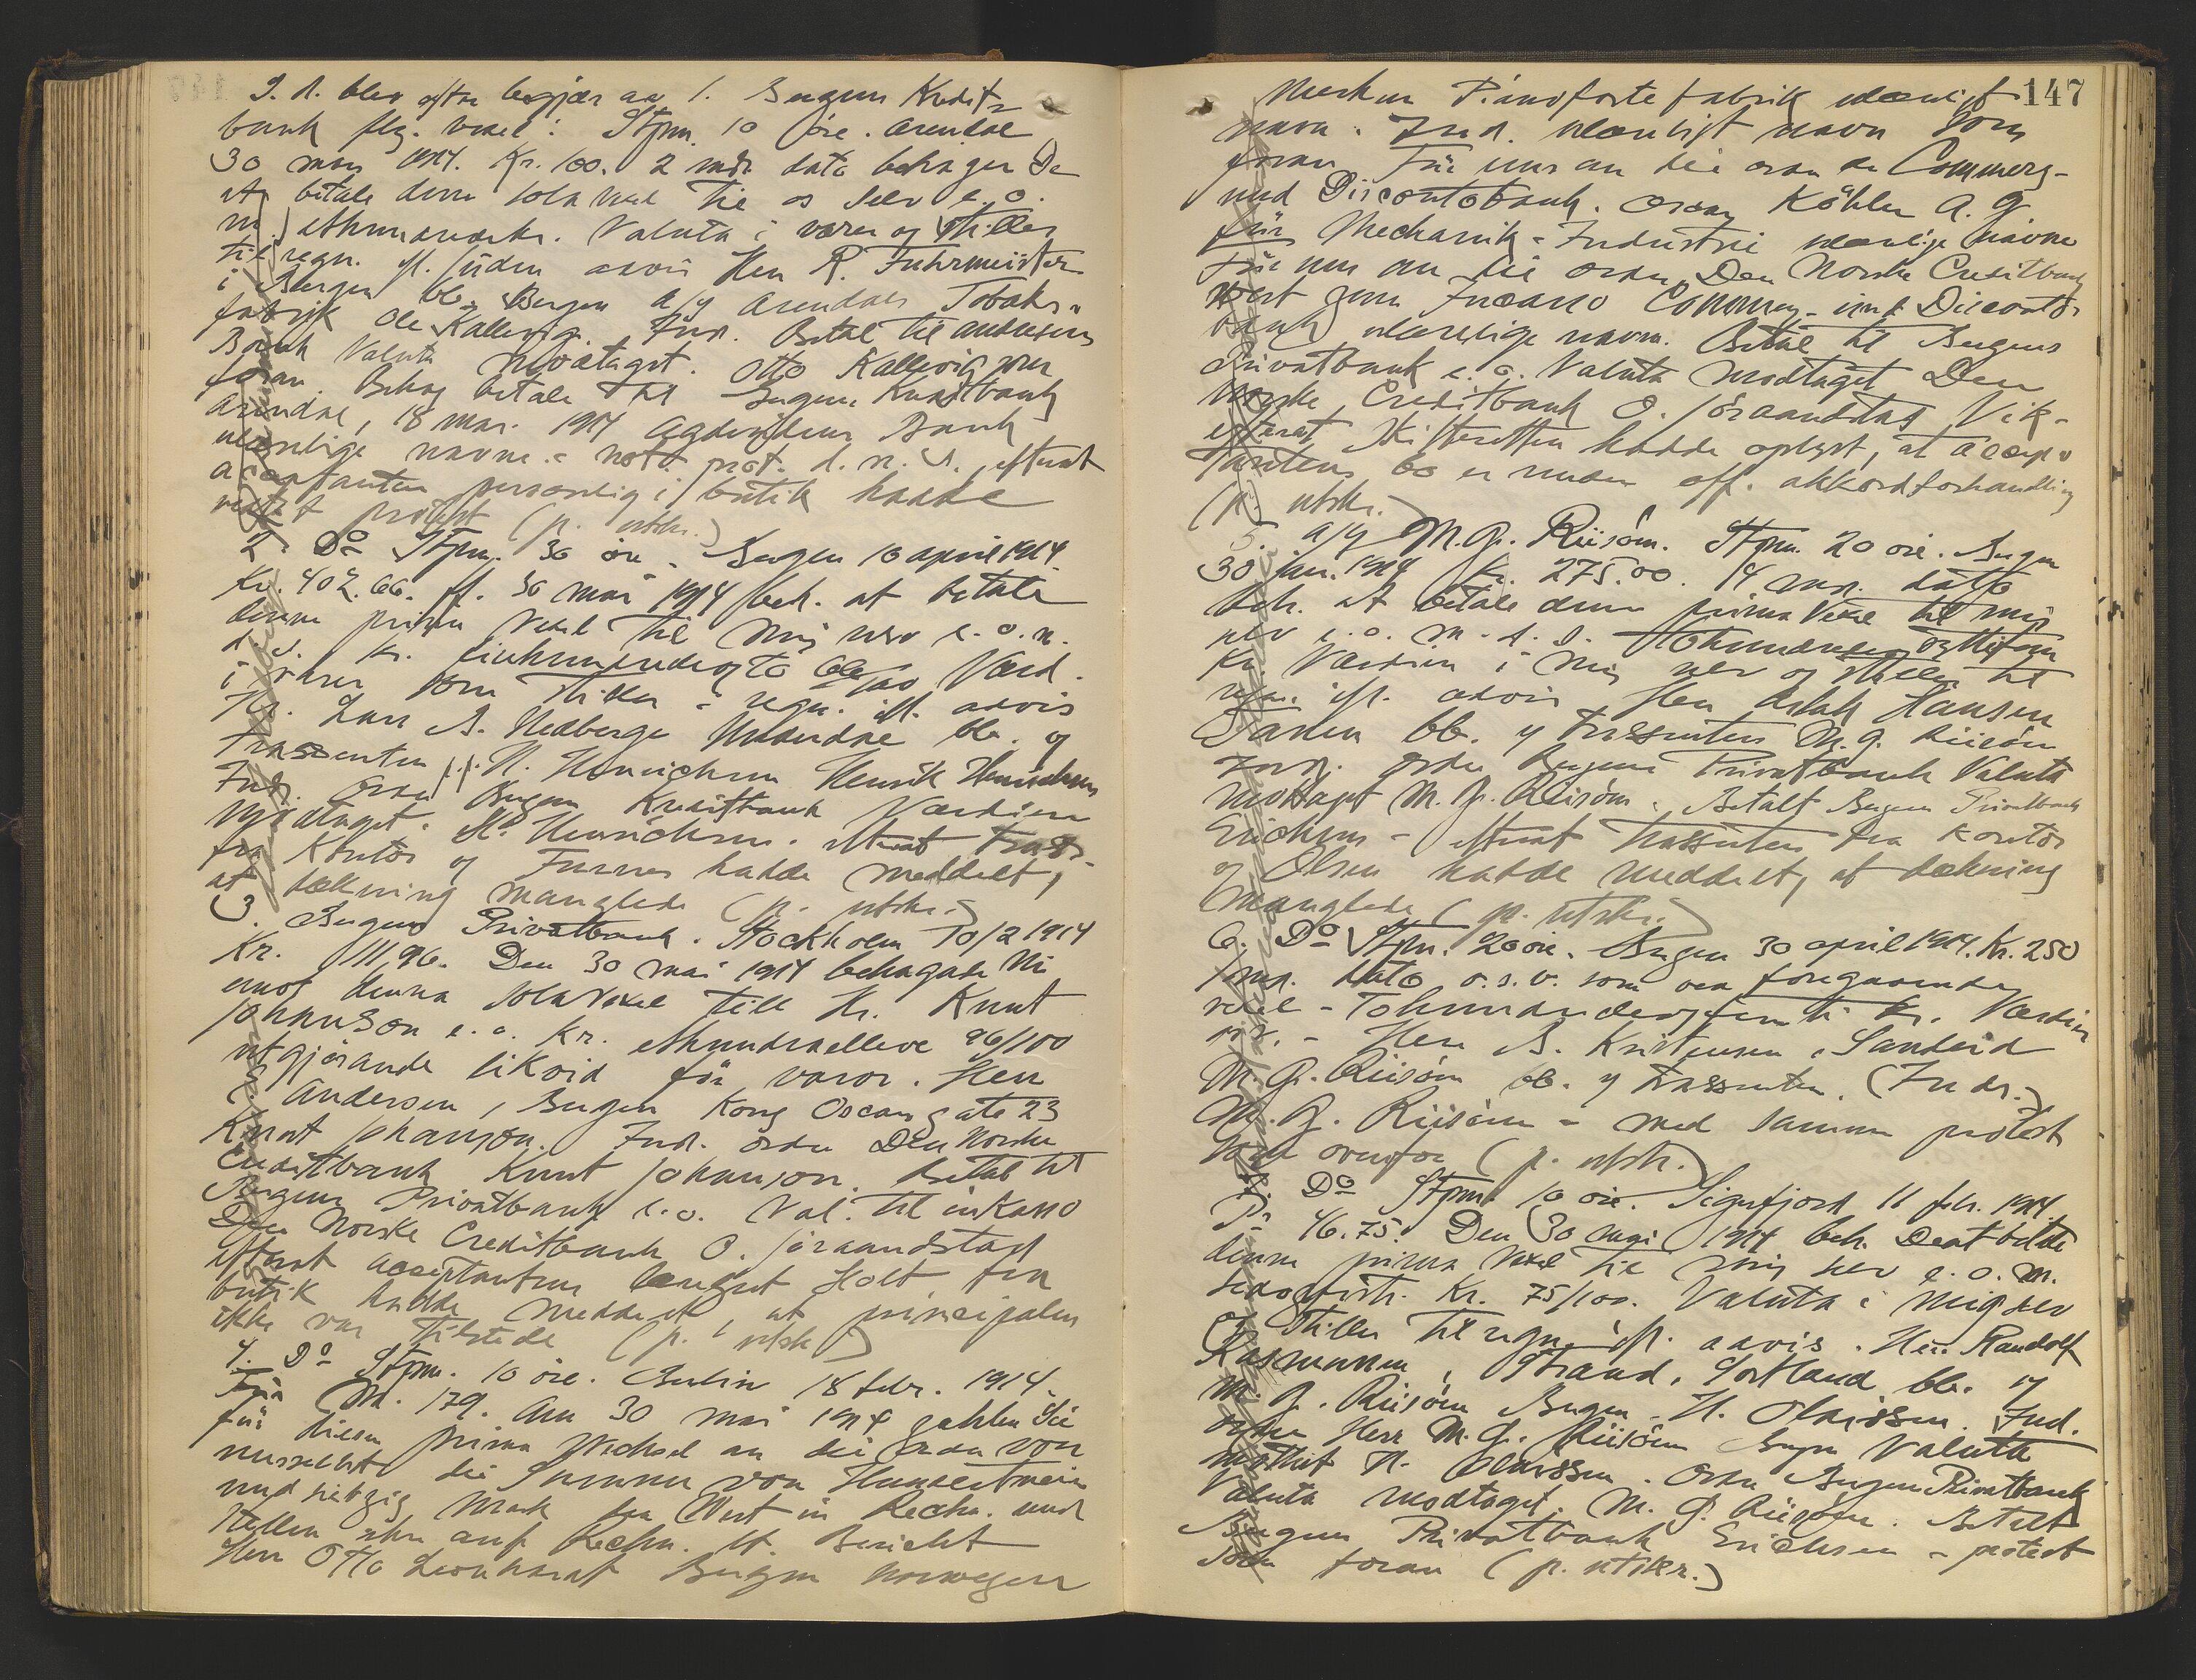 I. d. blev efter begjær av 1. Bergens Kredit-
bank flg. vexel: Stpm. 10 øre. Arendal
30 mars 1914. Kr. 100. 2 mdr. dato behager De
at betale denne sola vexel til os selv e. o.
m. ethundrede kr. Valuta i varer og stilles
til regn. if. uden advis Herr R. Fuhrmeister
i Bergen bb. Bergen a/q Arendals Tobaks-
fabrik Ole Kallevig. Ind. Betal til Andresens
Bank Valuta modtaget. Otto Kallevig som
foran. Behag betale til Bergens Kreditbank
Arendal, 18 mar. 1914 Agdesidens Bank
ulæselige navne - not. prot. d. n. s. efterat
acceptanten personlig i butik hadde
protest (p. utskr.)
2. Do Stpm. 30 øre. Bergen 10 april 1914.
Kr. 402.66. pr. 30 mai 1914 beh. at betale
denne prima vexel til mig selv e. o. m.
d. s. kr. firehundredeogto Værd.
i varer som stilles i regn. if. advis
Hr. Lars A. Hedberge bb. og
trassenten p.p. H. Henrichsen Henrik Henrichsen
Ind. Ordre Bergens Kreditbank Værdien
modtaget. H. Henrichsen. efterat trass.
fra Kontor og Furnes hadde meddelt,
at dækning manglede (p. utskr.)
3. Bergens Privatbank. Stockholm 10/2 1914
Kr. 111,96. Den 30 mai 1914 behagade Ni
emot denna sola vexel till Hr. Knut
Johanson e. o. Kr. ethundraelleve 96/100
utgjörande likvid för varor. Herr
Andersen, Bergen Kong Oscars gate 23
Knut Johanson. Ind. ordre Den Norske
Creditbank Knut Johanson. Betal til
Bergens Privatbank e. o. Val. til inkasso
Den Norske Creditbank O. Jöraandstad
efterat acceptanten Holt fra
butik hadde meddelt, at principalen
ikke var tilstede (p. utskr.)
4. Do Stpm. 10 øre. Berlin 18 febr. 1914.
Für M. 179. Am 30 mai 1914 zahlen Sie
für diesen prima Wechsel an die Order von
uns selbst die Summe von Hundertneun
und siebzig Mark den Wert in Rechn. und
stellen ihn auf Rechn. lt. Bericht
Herr Otto Leonhardt Bergen Norwegen
147
Merkur Pianoforte fabrik ulæseligt
navn. Ind. ulæseligt navn som
foran. Für uns an die order der Commerz-
und Discontobank. Oscar Köhler A. G.
für Mechanik-Industrie ulæselige navne
Für uns an die order Den Norske Creditbank
Wert zum Incasso Commerz- und Disconto-
bank ulæselige navne. Betal til Bergens
Privatbank e. o. Valuta modtaget Den
Norske Creditbank O. Jöraandstad Vik-
efterat Skifteretten hadde oplyst, at accep-
tantens bo er under off. akkordforhandling
(p. utskr.)
5. a/q M. G. Riisøm. Stpm. 20 øre. Bergen
30 jan. 1914 Kr. 275.00. 4 mdr. dato
beh. at betale denne prima vexel til mig
selv e. o. m. d. s. Tohundredeogsyttifem
kr. Værdien i mig selv og stilles til
regn. if. advis Herr Aslak Hansen
bb. og trassenten M. G. Riisøm
Ind. Ordre Bergens Privatbank Valuta
modtaget M. G. Riisøm. Betalt Bergens Privatbank
Erichsen - efterat trassenten fra kontor
og Olsen hadde meddelt, at dækning
manglede (p. utskr.)
6. Do Stpm. 20 øre. Bergen 30 april 1914. Kr. 250
1 md. dato o.s.v. som ved foregaaende
vexel - Tohundredeogfemti kr. Værdien
- Herr A. Kristensen, Sandeid
M. G. Riisøm bb. og trassenten. (Ind.)
M. G. Riisøm - med samme protest
som ovenfor (p. utskr.)
7. Do Stpm. 10 øre. Sigerfjord 11 febr. 1914.
Pr. 46.75. Den 30 mai 1914 beh. De at betale
denne prima vexel til mig selv e. o. m.
seksogfirti Kr. 75/100. Valuta i mig selv
og stilles til regn. if. advis. Herr Randolf
Rasmussen, Strand, Sortland bb. og
M. G. Riisøm Bergen - H. Olaissen. Ind.
ordre Herr M. G. Riisøm Bergen Valuta
mottat H. Olaissen. Ordre Bergens Privatbank
Valuta modtaget. M. G. Riisøm. Betalt
Bergens Privatbank Erichsen - protest
som foran (p. utskr.)